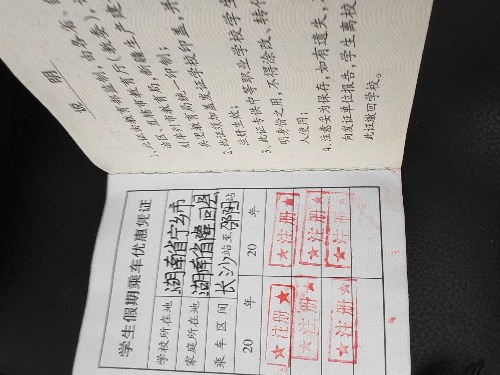 说 明
1、此证由教育部监制，由各省、
教育厅（教委），
市教育局，新疆生产建
兵团教育局统一印制；
2、此证须加盖发证学校印章，并
注册生效；
3、此证专供中等职业学校学生
明身份之用，不得涂改、转
人使用；
4、注意妥为保存，如有遗失，
向发证单位报告，学生离校
此证缴回学校。
学生假期乘车优惠凭证
学校所在地 湖南省宁乡市
家庭所在地 湖南省隆回县
乘车区间 长沙站至邵阳站
20 年 20 年
★注册★ ★注册★
★注册★ ★注册★
★注册★ ★注册★